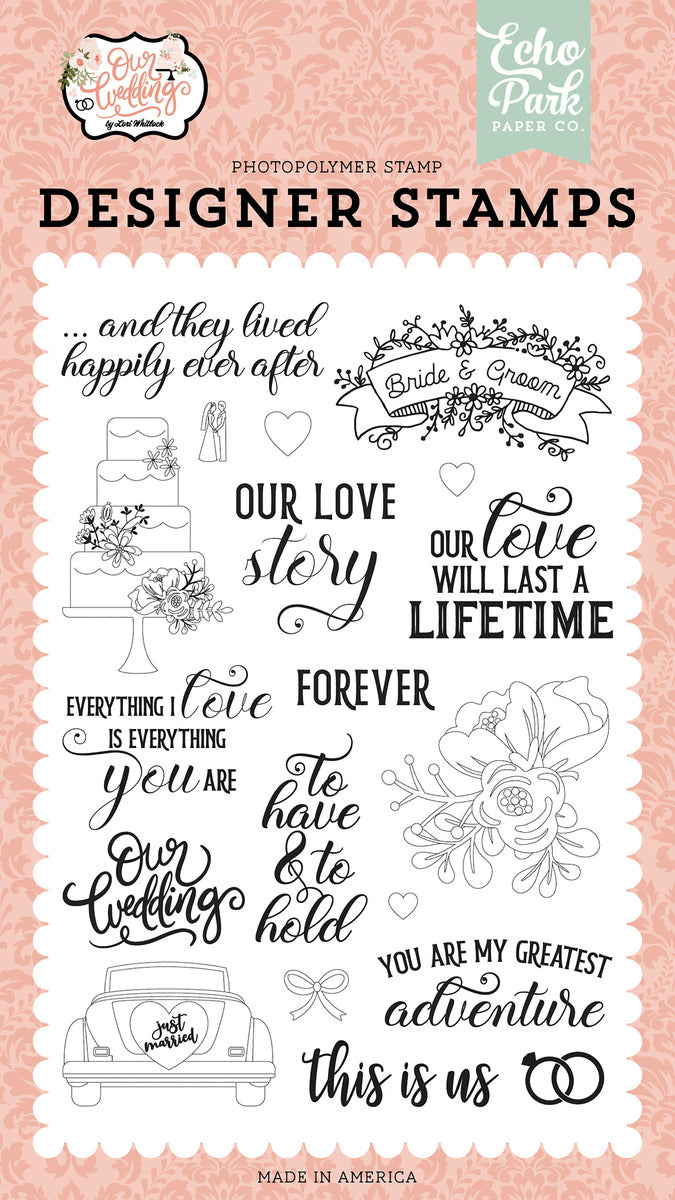 Our
Wedding
by Lori Whitlock
Echo
Park
PAPER CO.
PHOTOPOLYMER STAMP
DESIGNER STAMPS
... and they lived
happily ever after
Bride & Groom
OUR LOVE
story
OUR love
WILL LAST A
LIFETIME
EVERYTHING I love
IS EVERYTHING
you ARE
FOREVER
to
have
& to
hold
Our
Wedding
YOU ARE MY GREATEST
adventure
just
married
this is us
MADE IN AMERICA